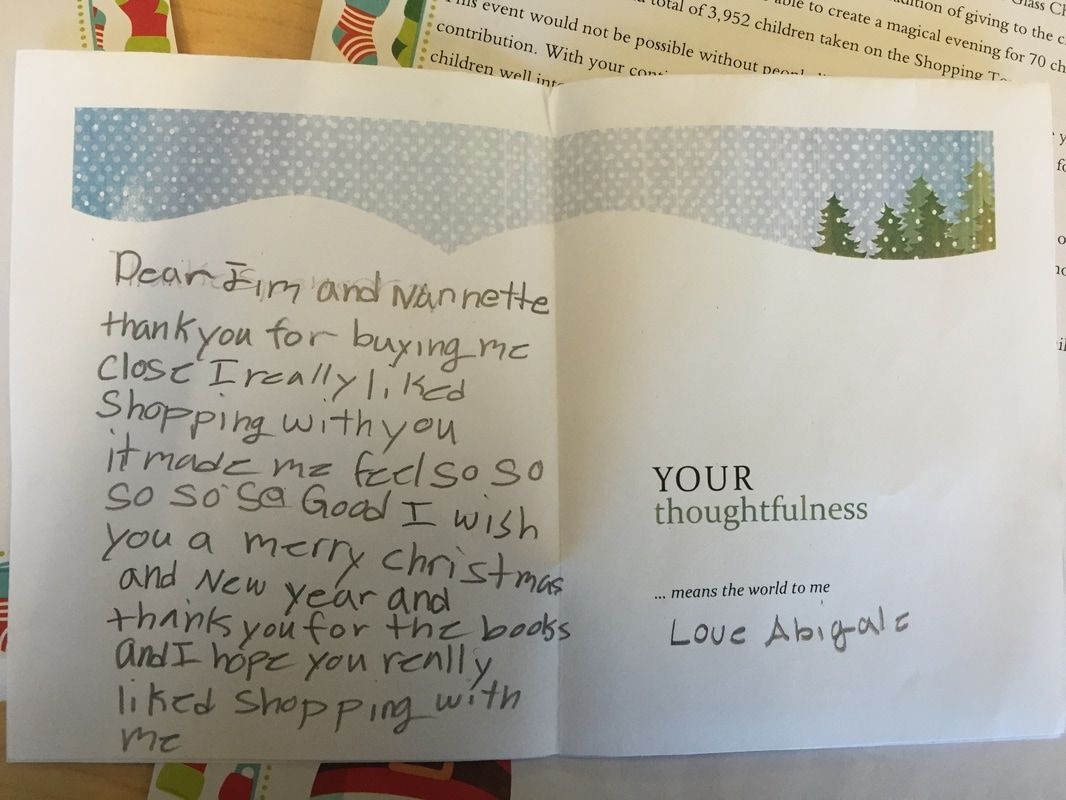 Glass
dition of giving to the
able to create a magical evening for 70
total of 3,952 children taken on the Shopping
This event would not be possible without
contribution. With your
children well
Dear Jim and Nannette
thank you for buying me
Close I really liked
Shopping with you
it made me feel so so
so so so Good I wish
you a merry christmas
and New year and
thank you for the books
and I hope you really
liked shopping with
me
YOUR
thoughtfulness
... means the world to me
Love Abigale